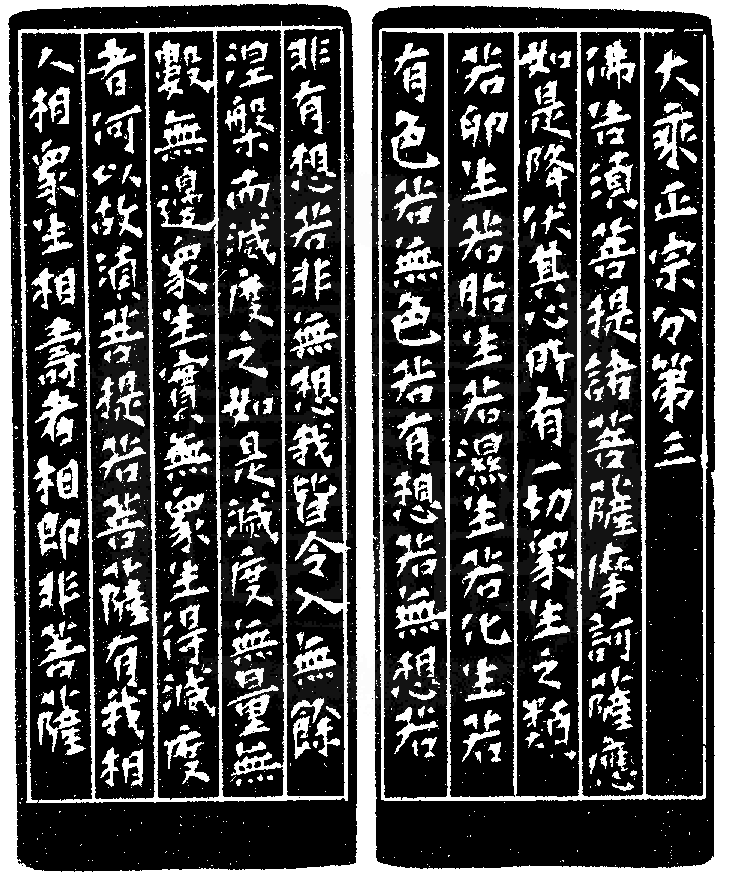 大乘正宗分第三
佛告須菩提諸菩薩摩訶薩應
如是降伏其心所有一切衆生之類
若卵生若胎生若濕生若化生若
有色若無色若有想若無想若
非有想若非無想我皆令入無餘
涅槃而滅度之如是滅度無量無
數無邊衆生實無衆生得滅度
者何以故須菩提若菩薩有我相
人相衆生相壽者相即非菩薩